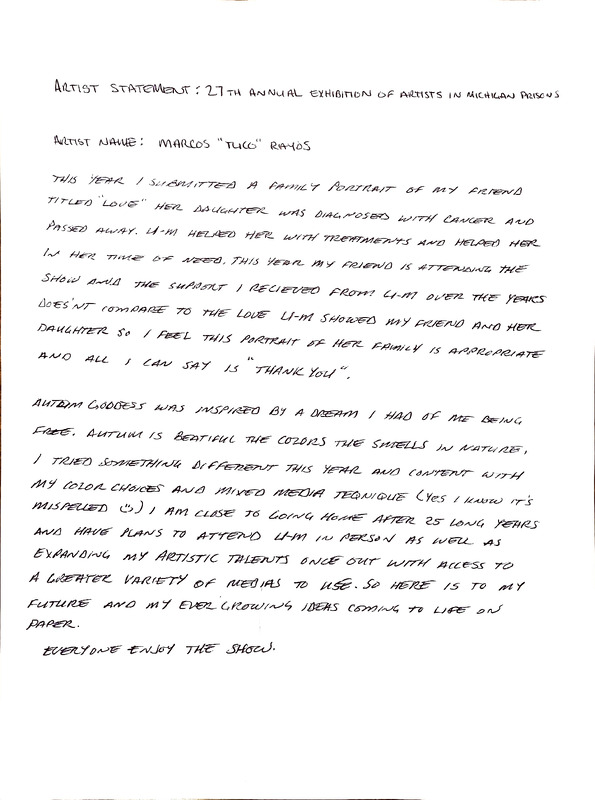 ARTIST STATEMENT: 27TH ANNUAL EXHIBITION OF ARTISTS IN MICHIGAN PRISONS
ARTIST NAME: MARCOS "TUCO" RAYOS
THIS YEAR I SUBMITTED A FAMILY PORTRAIT OF MY FRIEND
TITLED "LOVE" HER DAUGHTER WAS DIAGNOSED WITH CANCER AND
PASSED AWAY. U-M HELPED HER WITH TREATMENTS AND HELPED HER
IN HER TIME OF NEED. THIS YEAR MY FRIEND IS ATTENDING THE
SHOW AND THE SUPPORT I RECIEVED FROM U-M OVER THE YEARS
DOES'NT COMPARE TO THE LOVE U-M SHOWED MY FRIEND AND HER
DAUGHTER SO I FEEL THIS PORTRAIT OF HER FAMILY IS APPROPRIATE
AND ALL I CAN SAY IS "THANK YOU".
AUTUM GODDESS WAS INSPIRED BY A DREAM I HAD OF ME BEING
FREE. AUTUM IS BEATIFUL THE COLORS THE SMELLS IN NATURE.
I TRIED SOMETHING DIFFERENT THIS YEAR AND CONTENT WITH
MY COLOR CHOICES AND MIXED MEDIA TEQNIQUE (YES I KNOW IT'S
MISPELLED ☺) I AM CLOSE TO GOING HOME AFTER 25 LONG YEARS
AND HAVE PLANS TO ATTEND U-M IN PERSON AS WELL AS
EXPANDING MY ARTISTIC TALENTS ONCE OUT WITH ACCESS TO
A GREATER VARIETY OF MEDIAS TO USE. SO HERE IS TO MY
FUTURE AND MY EVER GROWING IDEAS COMING TO LIFE ON
PAPER.
EVERYONE ENJOY THE SHOW.